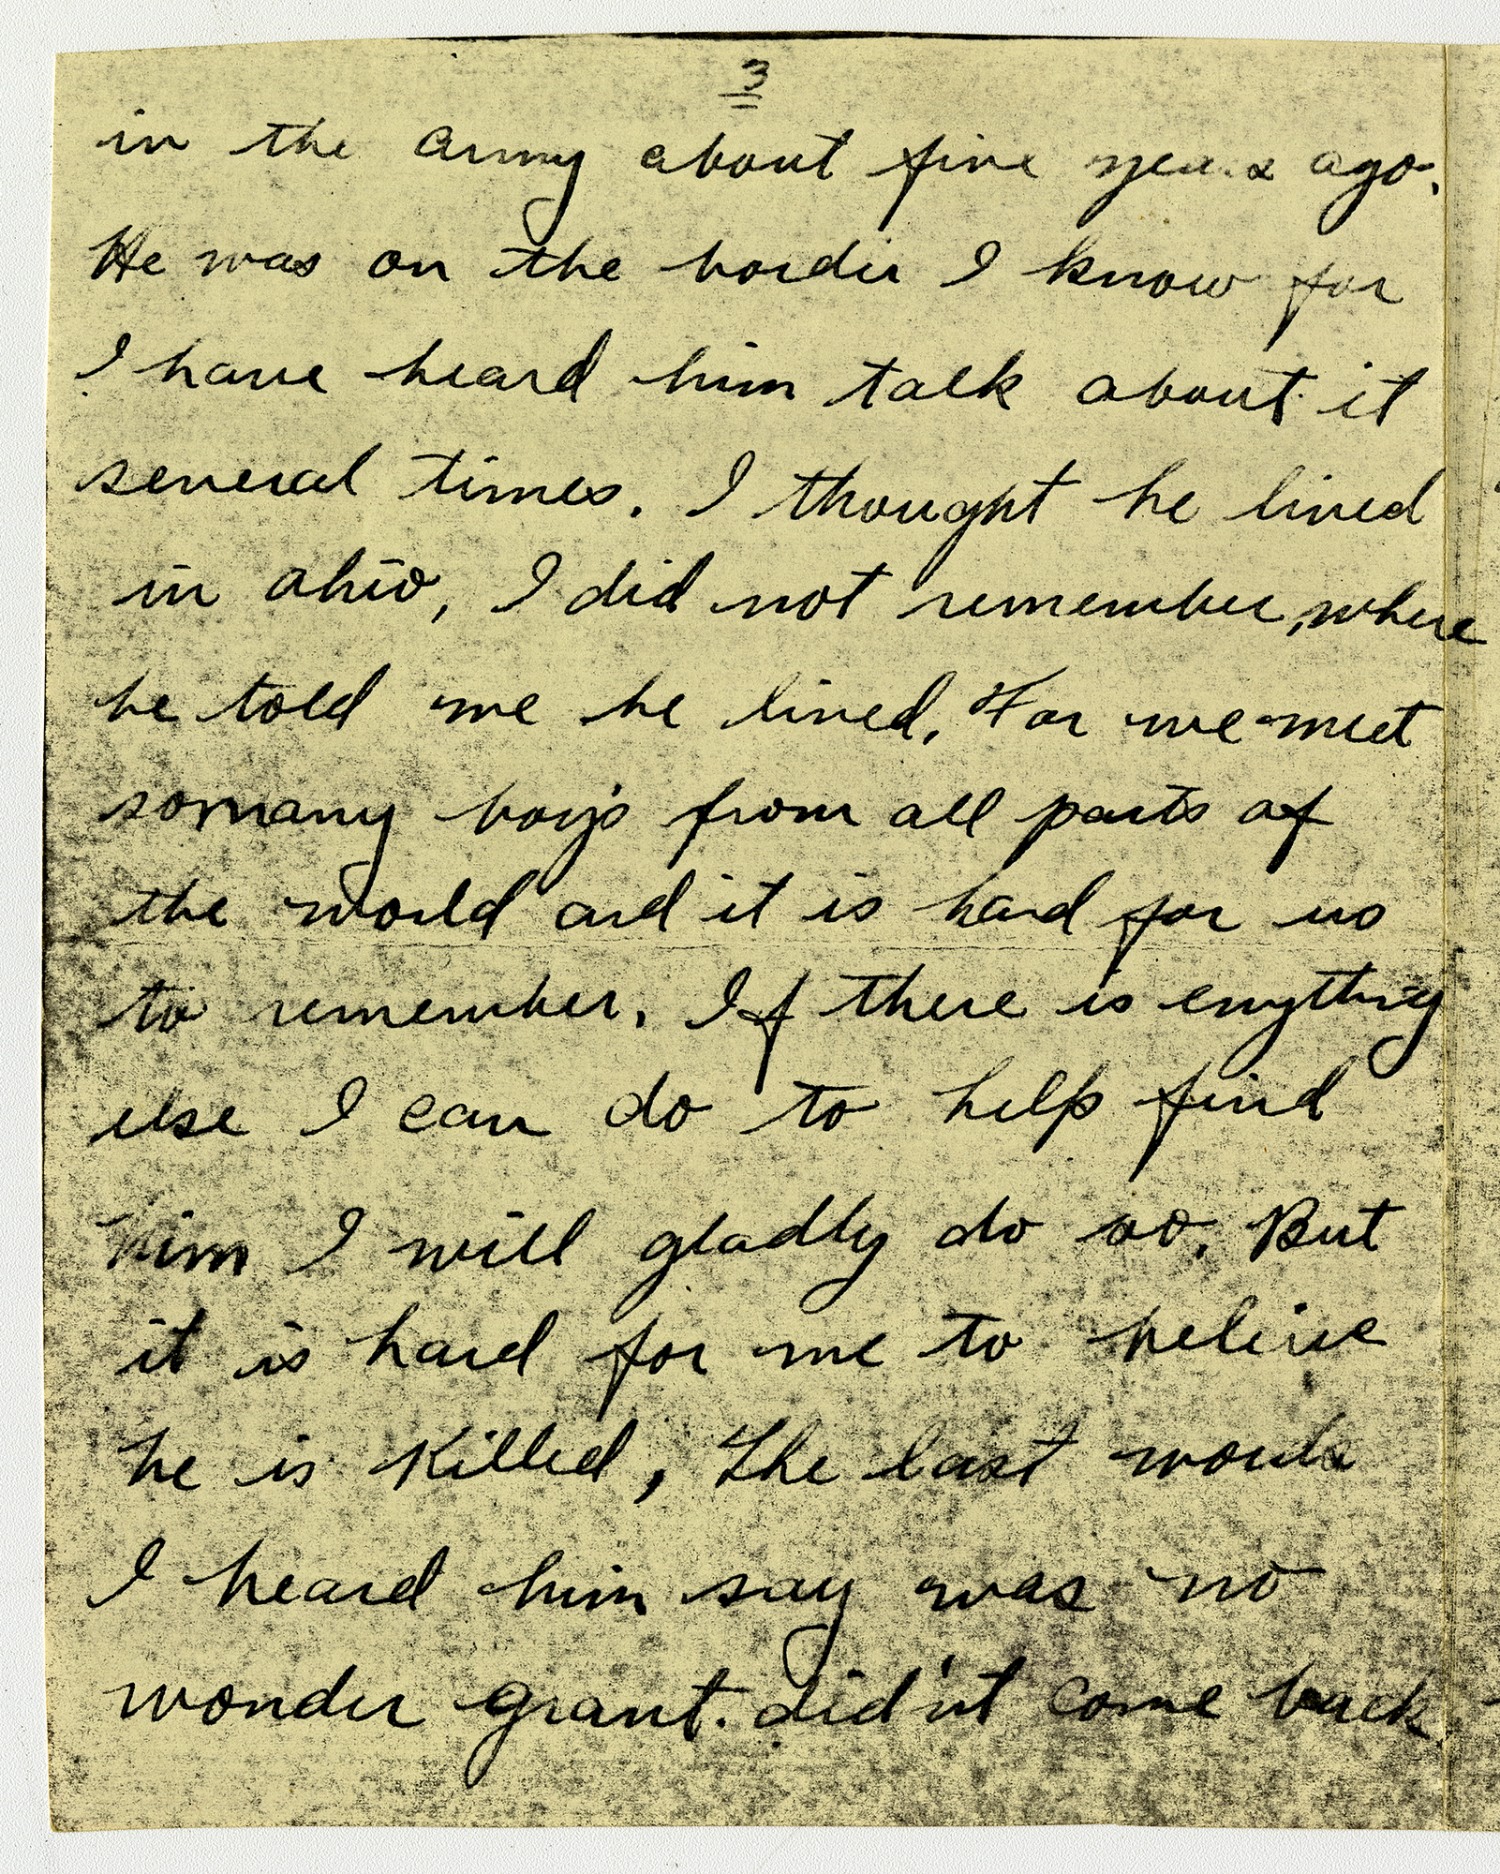 3
in the army about five years ago.
He was on the border I know for
I have heard him talk about it
several times. I thought he lived
in ohio, I did not remember, where
he told me he lived. For we meet
somany boys from all parts of
the world and it is hard for us
to remember. If there is enything
else I can do to help find
him I will gladly do so. But
it is hard for me to belive
he is killed, The last words
I heard him say was no
wonder grant. did'nt come back